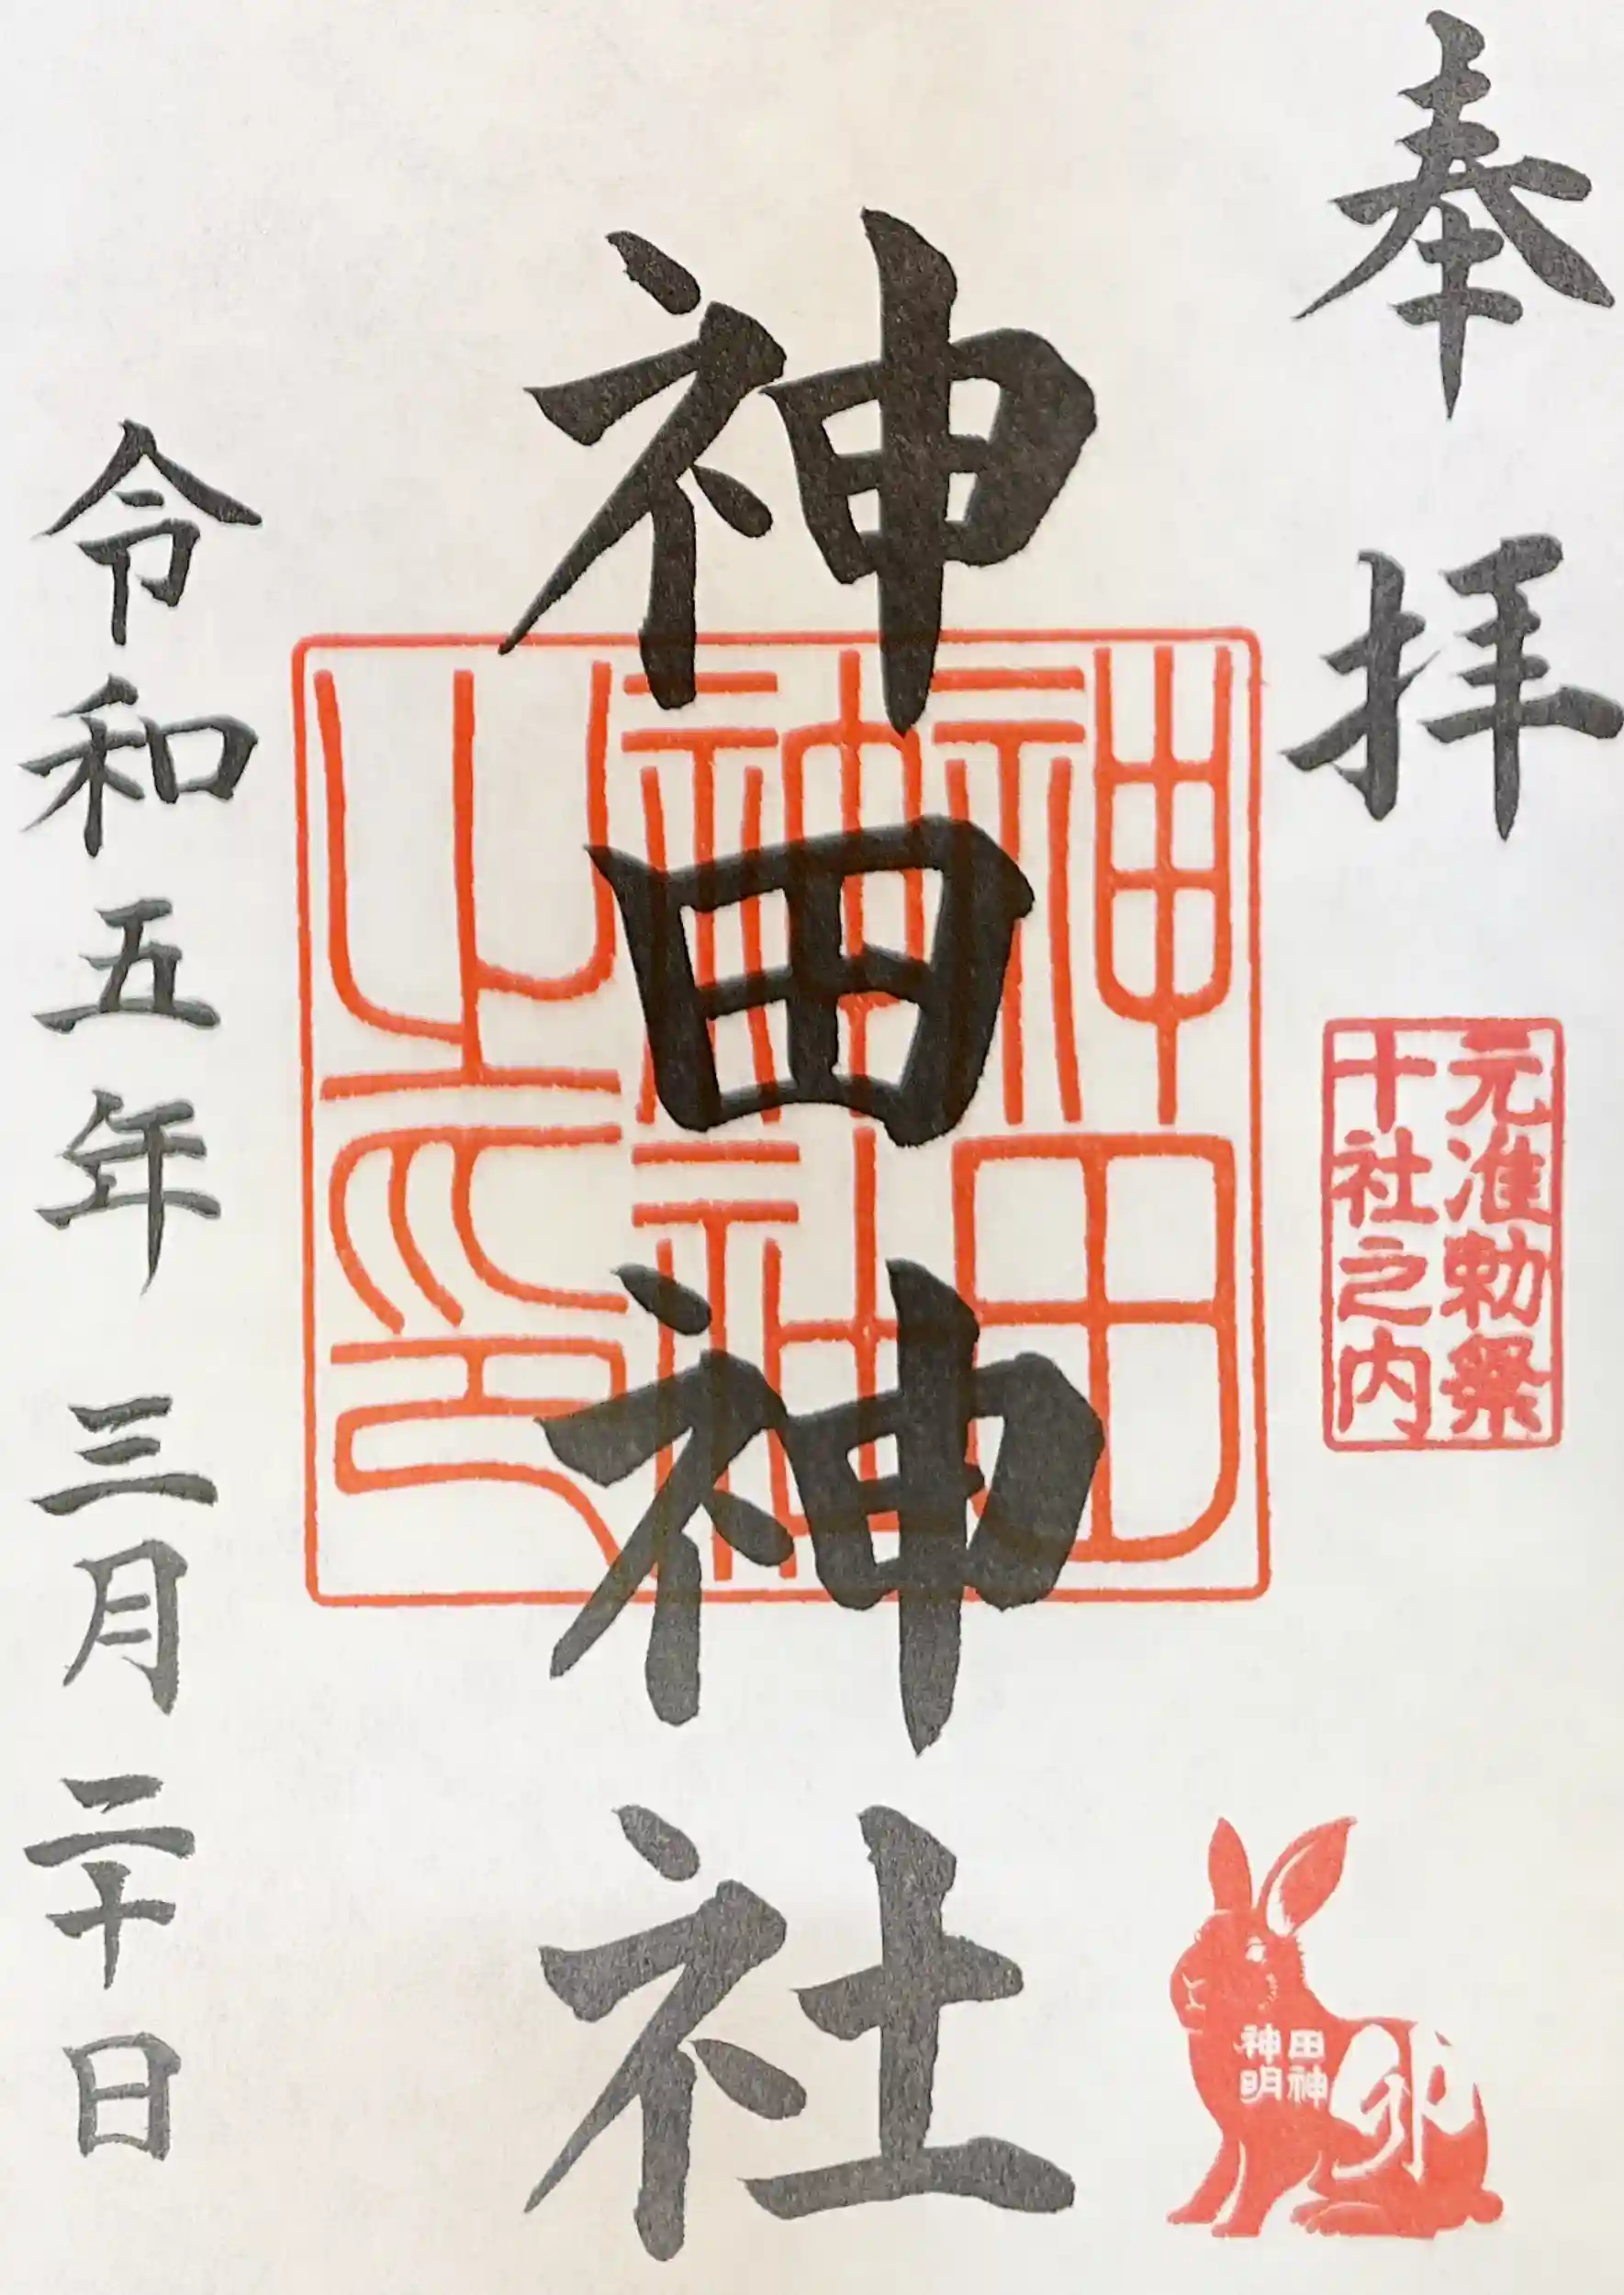 奉拝
元准勅祭
十社之内
神田神社
神田
神社
之印
神田
明神
卯
令和五年 三月二十日